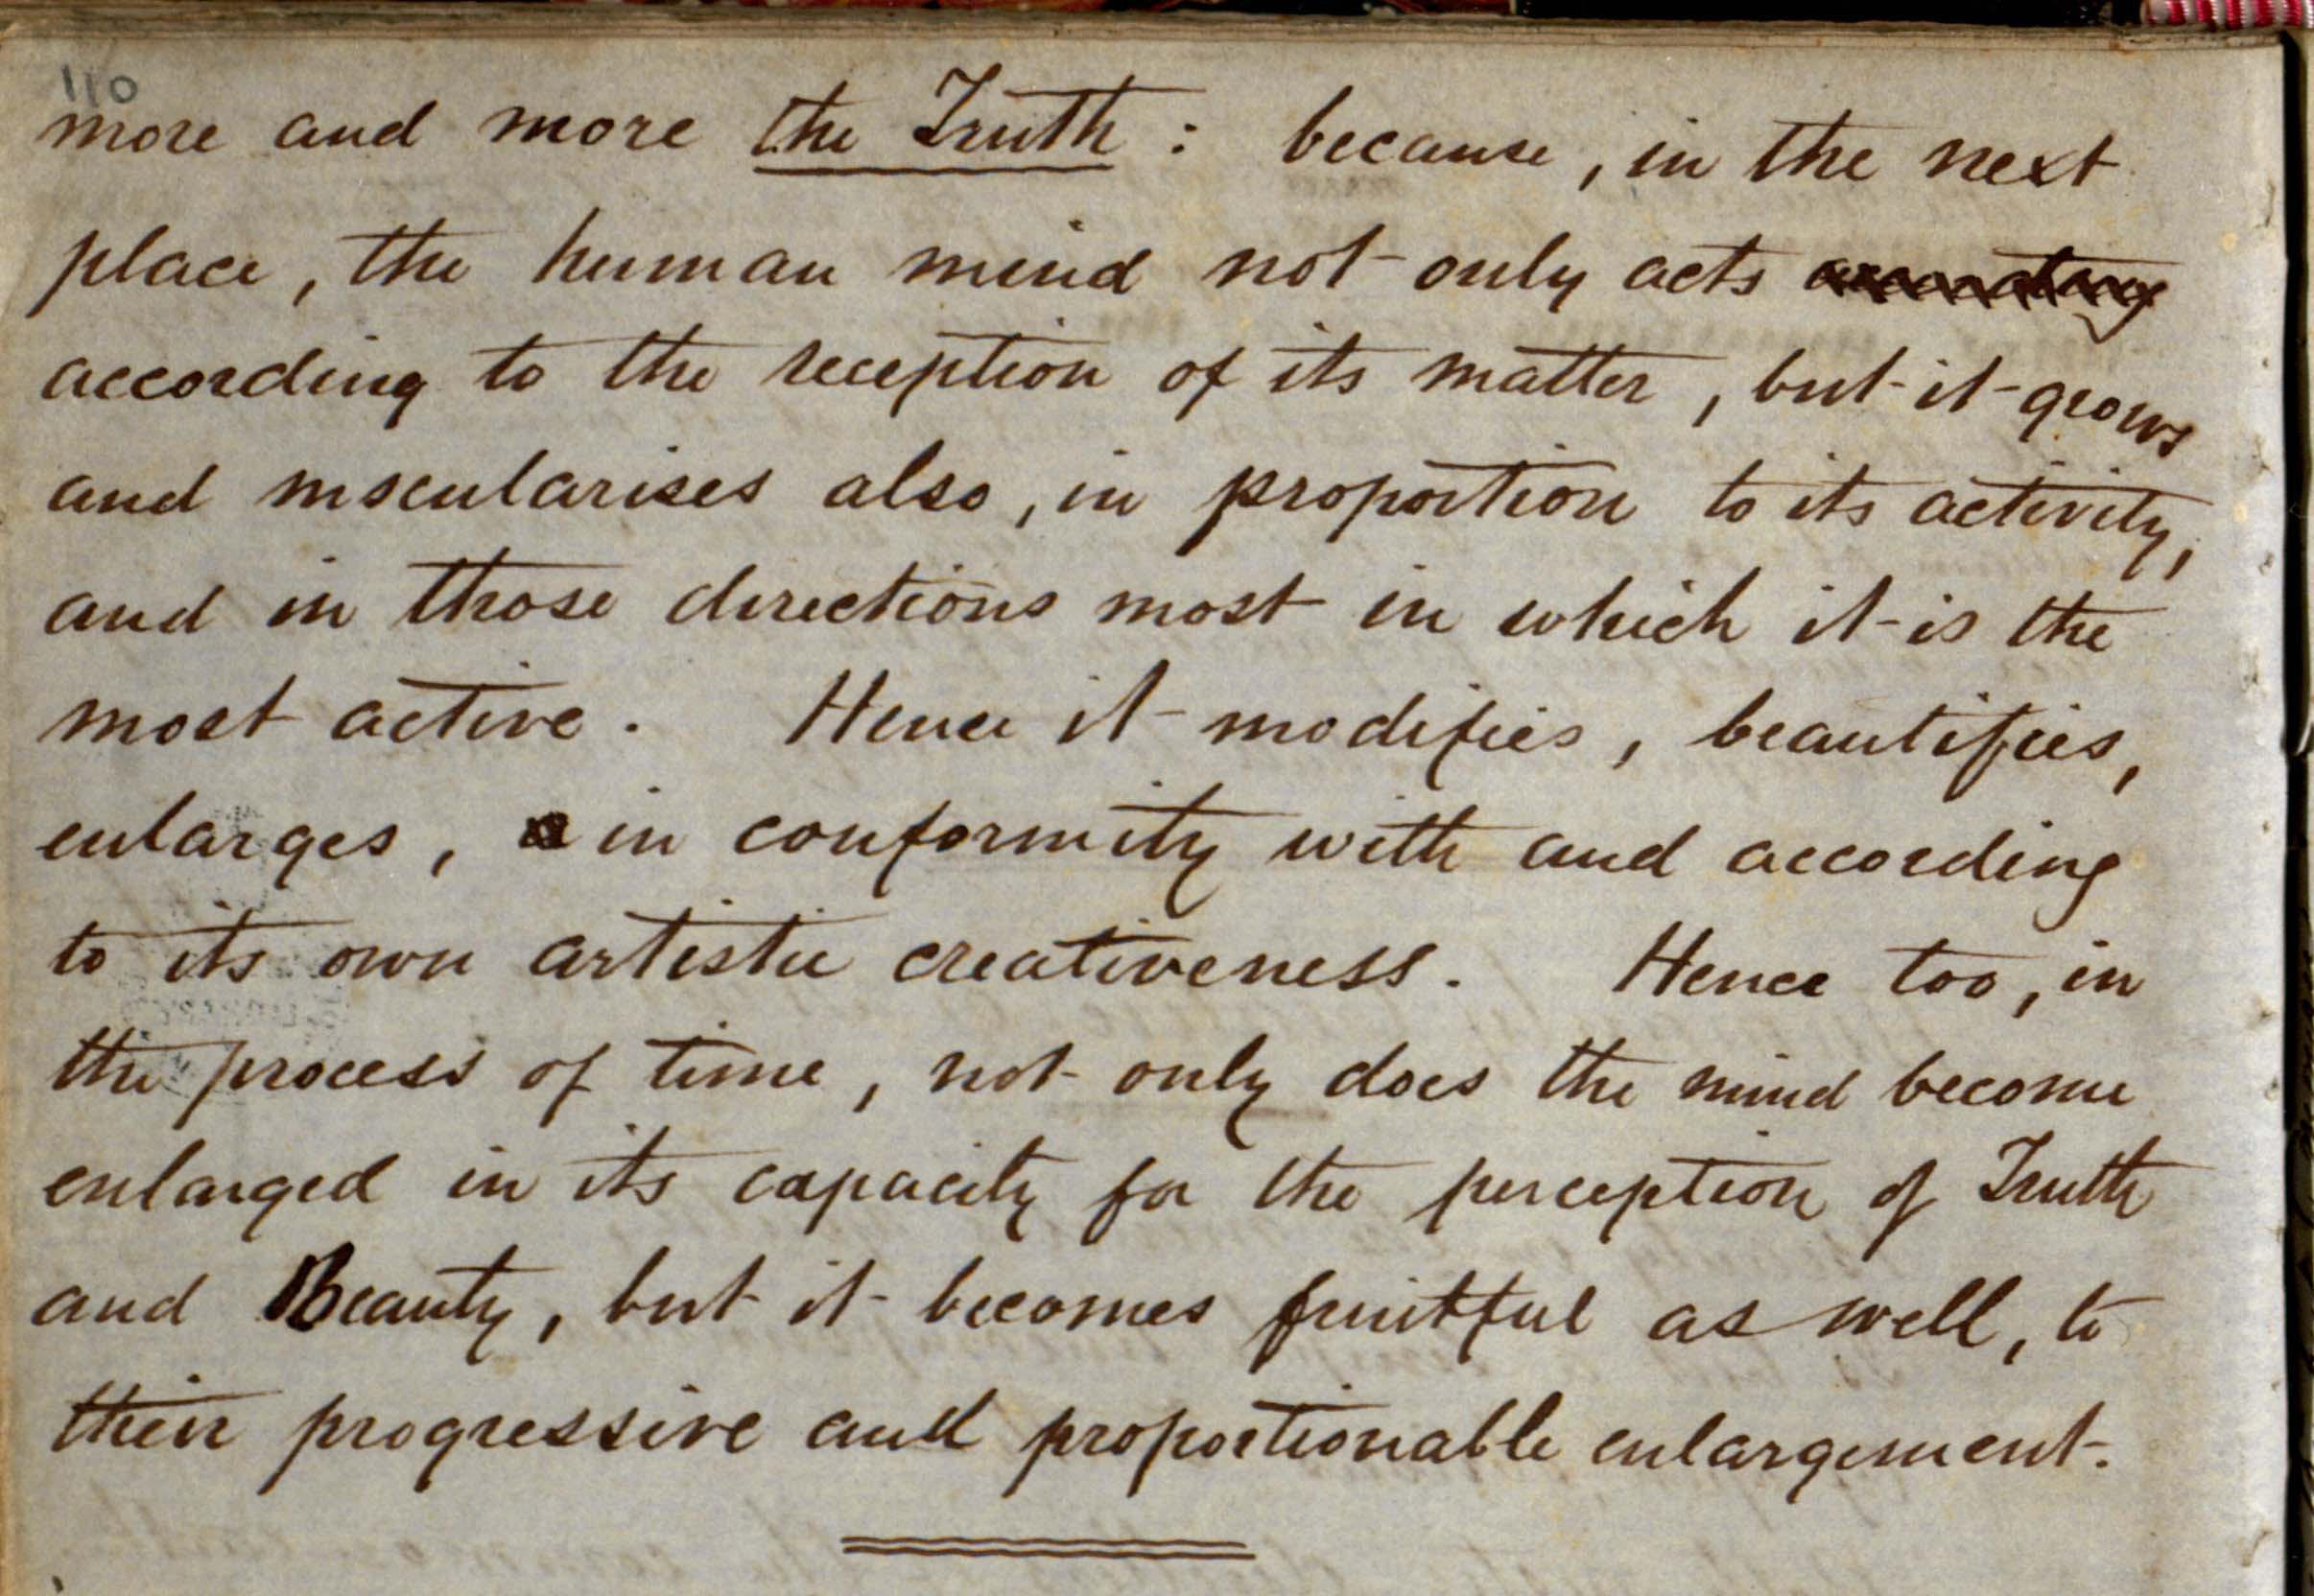 110
more and more the Truth : because, in the next
place, the human mind not only acts
according to the reception of its matter, but it grows
and mscularises also, in proportion to its activity,
and in those directions most in which it is the
most active. Hence it modifies, beautifies,
enlarges, in conformity with and according
to its own artistic creativeness. Hence too, in
the process of time, not only does the mind become
enlarged in its capacity for the perception of Truth
and Beauty, but it becomes fruitful as well, to
their progressive and proportionable enlargement.